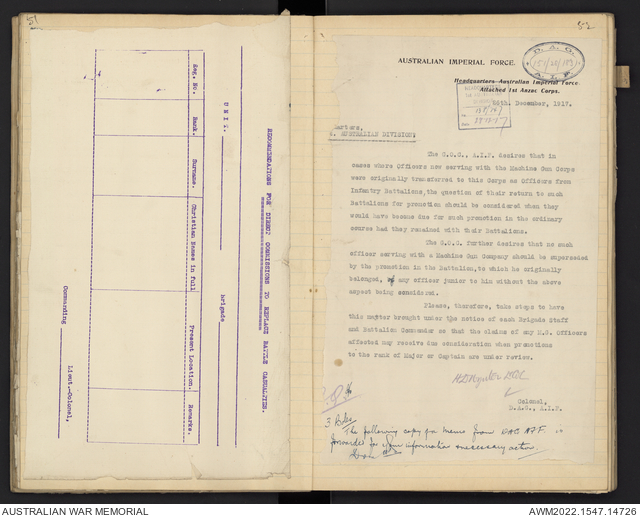 51
RECOMMENDATIONS FOR DIRECT COMMISSIONS TO REPLACE BATTLE CASUALTIES.
UNIT. Brigade
Reg. No. Rank. Surname. Christian Names in full Present Location. Remarks.
Lieut-Colonel,
Commanding
52
D. A. G.
A. I. F.
AUSTRALIAN IMPERIAL FORCE.
Headquarters Australian Imperial Force
Attached 1st Anzac Corps.
December, 1917.
AUSTRALIAN DIVISION:
The G.O.C., A.I.F. desires that in
cases where Officers now serving with the Machine Gun Corps
were originally transferred to this Corps as Officers from
Infantry Battalions, the question of their return to such
Battalions for promotion should be considered when they
would have become due for such promotion in the ordinary
course had they remained with their Battalions.
The G.O.C. further desires that no such
officer serving with a Machine Gun Company should be superseded
by the promotion in the Battalion, to which he originally
belonged, of any officer junior to him without the above
aspect being considered.
Please, therefore, take steps to have
this matter brought under the notice of each Brigade Staff
and Battalion Commander so that the claims of any M.G. Officers
affected may receive due consideration when promotions
to the rank of Major or Captain are under review.
Colonel,
D.A.G., A.I.F.
3 Bde
The following copy of memo from DAG AIF is
forwarded for your information & necessary action.
AUSTRALIAN WAR MEMORIAL
AWM2022.1547.14726